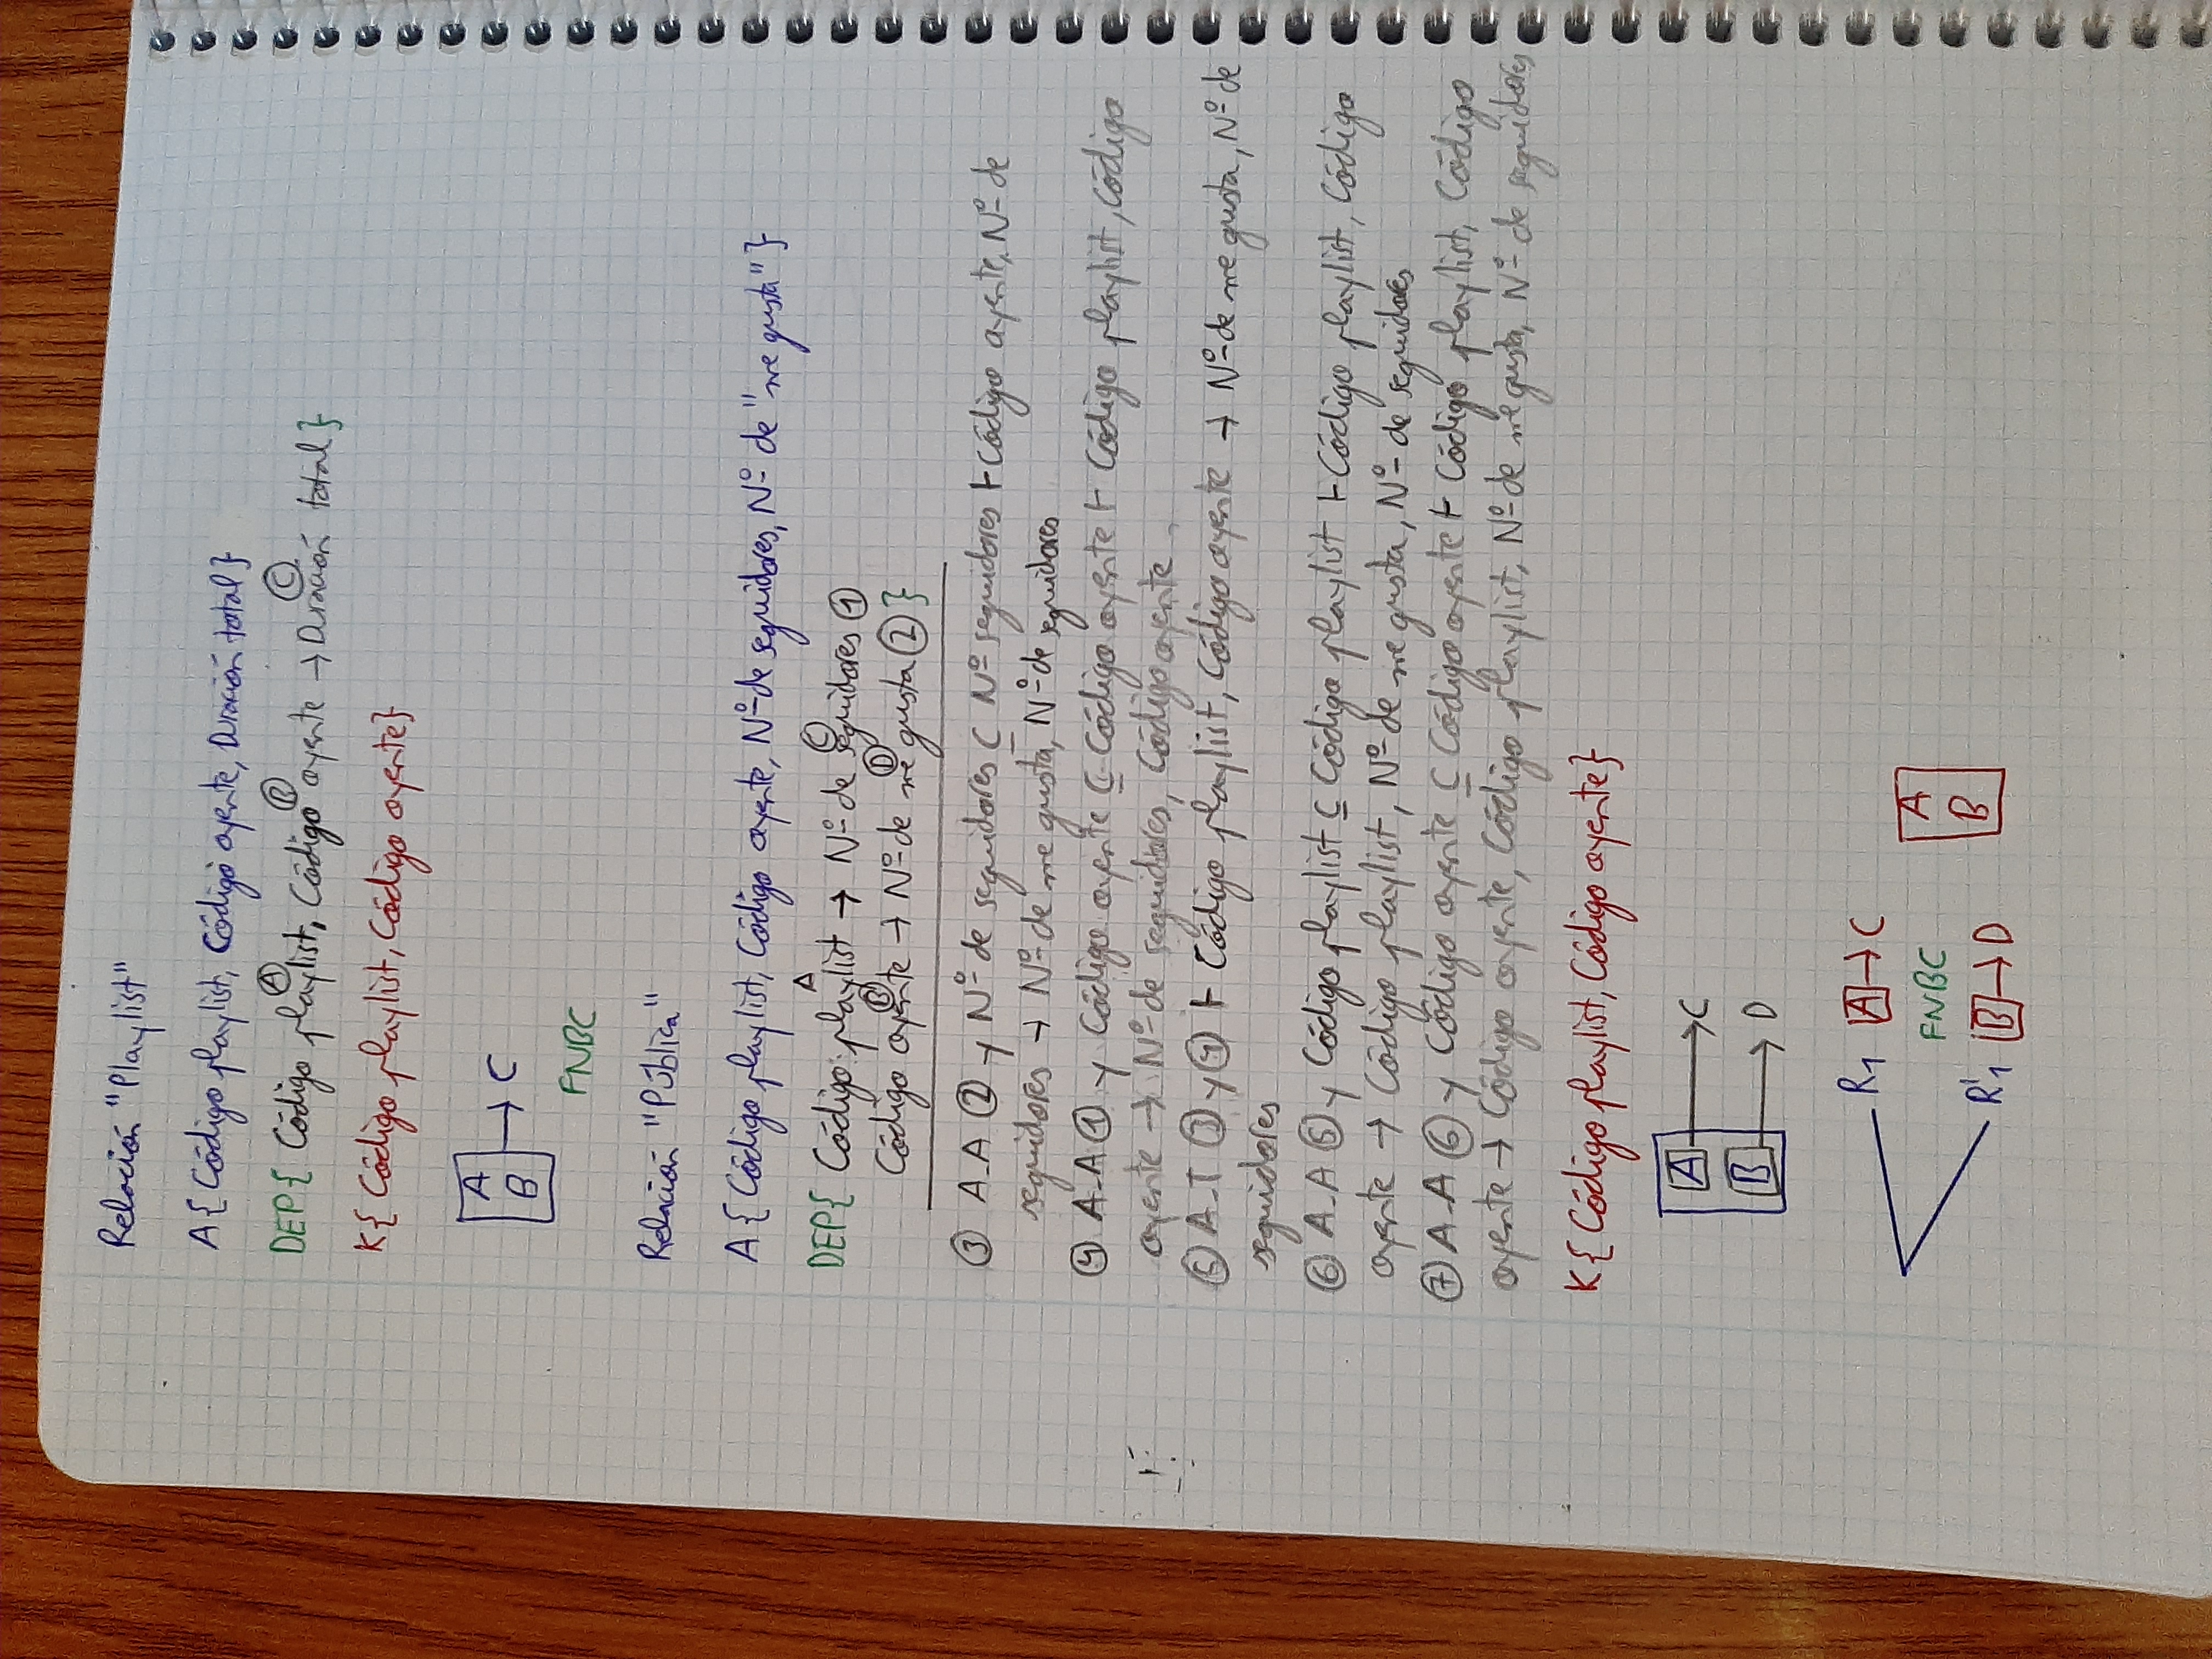 Relación "Playlist"
A{ Código playlist, Código oyente, Duración total}
A B C
DEP{ Código playlist, Código oyente → Duración total}
K{ Código playlist, Código oyente}
A
B → C
FNBC
Relación "Pública"
A { Código playlist, Código oyente, Nº de seguidores, Nº de "me gusta" }
A C
DEP{ Código playlist → Nº de seguidores ①
B D
Código oyente → Nº de me gusta ② }
③ A.A ② y Nº de seguidores ⊆ Nº seguidores ⊢ Código oyente, Nº de
seguidores → Nº de me gusta, Nº de seguidores
④ A.A ① y Código oyente ⊆ Código oyente ⊢ Código playlist, Código
oyente → Nº de seguidores, Código oyente
⑤ A.T ③ y ④ ⊢ Código playlist, Código oyente → Nº de me gusta, Nº de
seguidores
⑥ A.A ⑤ y Código playlist ⊆ Código playlist ⊢ Código playlist, Código
oyente → Código playlist, Nº de me gusta, Nº de seguidores
⑦ A.A ⑥ y Código oyente ⊆ Código oyente ⊢ Código playlist, Código
oyente → Código oyente, Código playlist, Nº de me gusta, Nº de seguidores
K{ Código playlist, Código oyente}
A → C
B → D
R1 A → C
FNBC
R'1 B → D
A
B